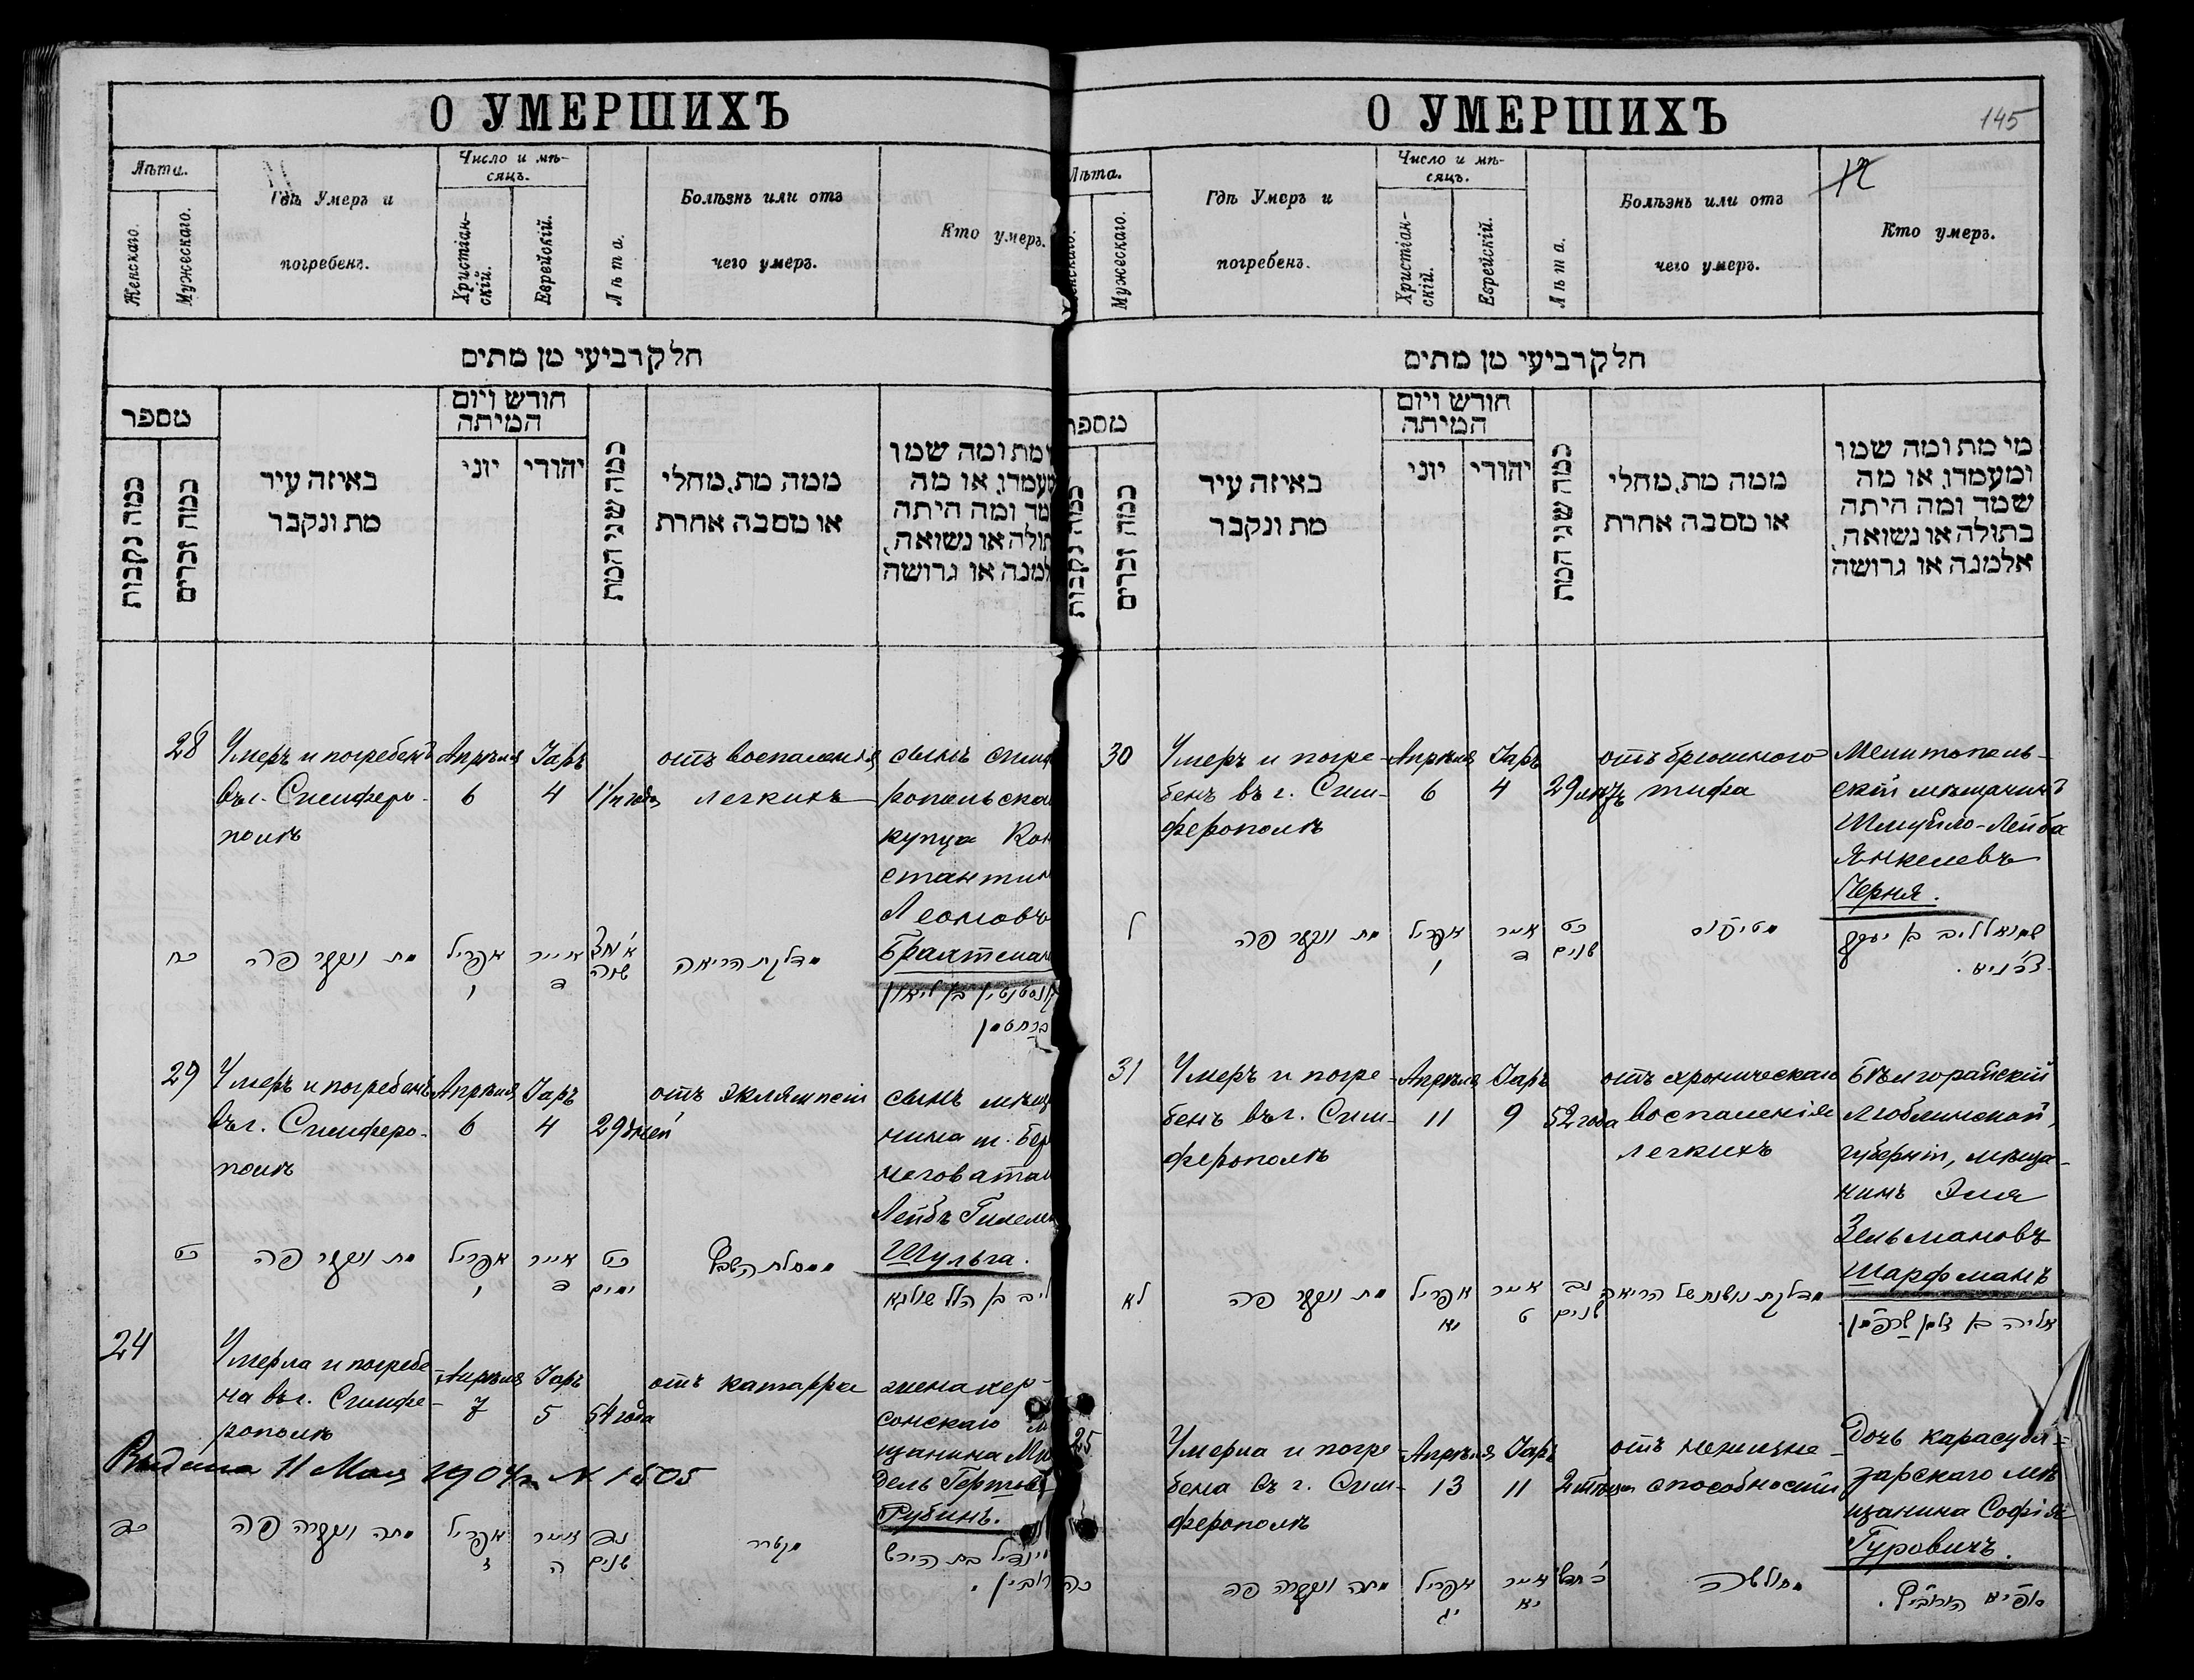 О УМЕРШИХЪ
Лѣта.
Женскаго.
Мужескаго.
Гдѣ Умеръ и
погребенъ.
Число и мѣ-
сяцъ.
Христіан-
скій.
Еврейскій.
Лѣта.
Болѣзнь или отъ
чего умеръ.
Кто умеръ.
חלק רביעי מן מתים
מספר
כמה נקבות
כמה זכרים
באיזה עיר
מת ונקבר
חודש ויום
המיתה
יוני
יהודי
כמה שני המת
ממה מת, מחלי
או מסבה אחרת
מת ומה שמו
מעמדו, או מה
שמד ומה היתה
תולה או נשואה,
למנה או גרושה
28
Умеръ и погребенъ
въ г. Симферо-
полѣ
Апрѣля
6
Іаръ
4
1½ года
отъ воспаленія
легкихъ
сынъ симф
ропольска
купца Кон
стантин
Леоновъ
Брахтман
כח
מת ונקבר פה
אפריל
ו
אייר
ד
א׳ וחצי
שנה
מדלקת הריאה
קונסטנטין בן ליאון
ברחטמן
29
Умеръ и погребенъ
въ г. Симферо-
полѣ
Апрѣля
6
Іаръ
4
29 дней
отъ эклямпсіи
сынъ мѣщ
нина м. Бер
неговатаи
Лейбъ Гилели
Шульга.
כט
מת ונקבר פה
אפריל
ו
אייר
ד
כט
ימים
ממחלת השבץ
ליב בן הלל שולגא
24
Умерла и погребе-
на въ г. Симфе-
рополѣ
Апрѣля
7
Іаръ
5
54 года
отъ катарра
жена хер-
сонскаго м
щанина Ми
дель Герцова
Рубинъ.
Выдана 11 Мая 1904 г. № 1505
כד
מתה ונקברה פה
אפריל
ז
אייר
ה
נד
שנים
מקטרר
מינדיל בת הירש
רובין.
О УМЕРШИХЪ
145
12
Лѣта.
Мужескаго.
Гдѣ Умеръ и
погребенъ.
Число и мѣ-
сяцъ.
Христіан-
скій.
Еврейскій.
Лѣта.
Болѣзнь или отъ
чего умеръ.
Кто умеръ.
חלק רביעי מן מתים
מספר
כמה נקבות
כמה זכרים
באיזה עיר
מת ונקבר
חודש ויום
המיתה
יוני
יהודי
כמה שני המת
ממה מת, מחלי
או מסבה אחרת
מי מת ומה שמו
ומעמדו, או מה
שמד ומה היתה
בתולה או נשואה,
אלמנה או גרושה
30
Умеръ и погре-
бенъ въ г. Сим-
ферополѣ
Апрѣля
6
Іаръ
4
29 лѣтъ
отъ брюшного
тифа
Мелитополь-
скій мѣщанинъ
Шмуйло-Лейба
Янкелевъ
Черня.
ל
מת ונקבר פה
אפריל
ו
אייר
ד
כט
שנים
מטיפוס
שמואל ליב בן יעקב
צרניא.
31
Умеръ и погре-
бенъ въ г. Сим-
ферополѣ
Апрѣля
11
Іаръ
9
52 года
отъ хроническаго
воспаленія
легкихъ
Бѣлгорайскій
Люблинской
губерніи, мѣща-
нинъ Элья
Зельмановъ
Шарфманъ
לא
מת ונקבר פה
אפריל
יא
אייר
ט
נב
שנים
מדלקת נושנת של הריאה
אליה בן זלמן שרפמן.
25
Умерла и погре-
бена въ г. Сим-
ферополѣ
Апрѣля
13
Іаръ
11
2 мѣсяца
отъ нежизне-
способности
Дочь карасуба-
зарскаго мѣ
щанина Софія
Гуровичъ.
כה
מתה ונקברה פה
אפריל
יג
אייר
יא
ב׳ חדש׳
מחולשה
סופיא הורוביץ.